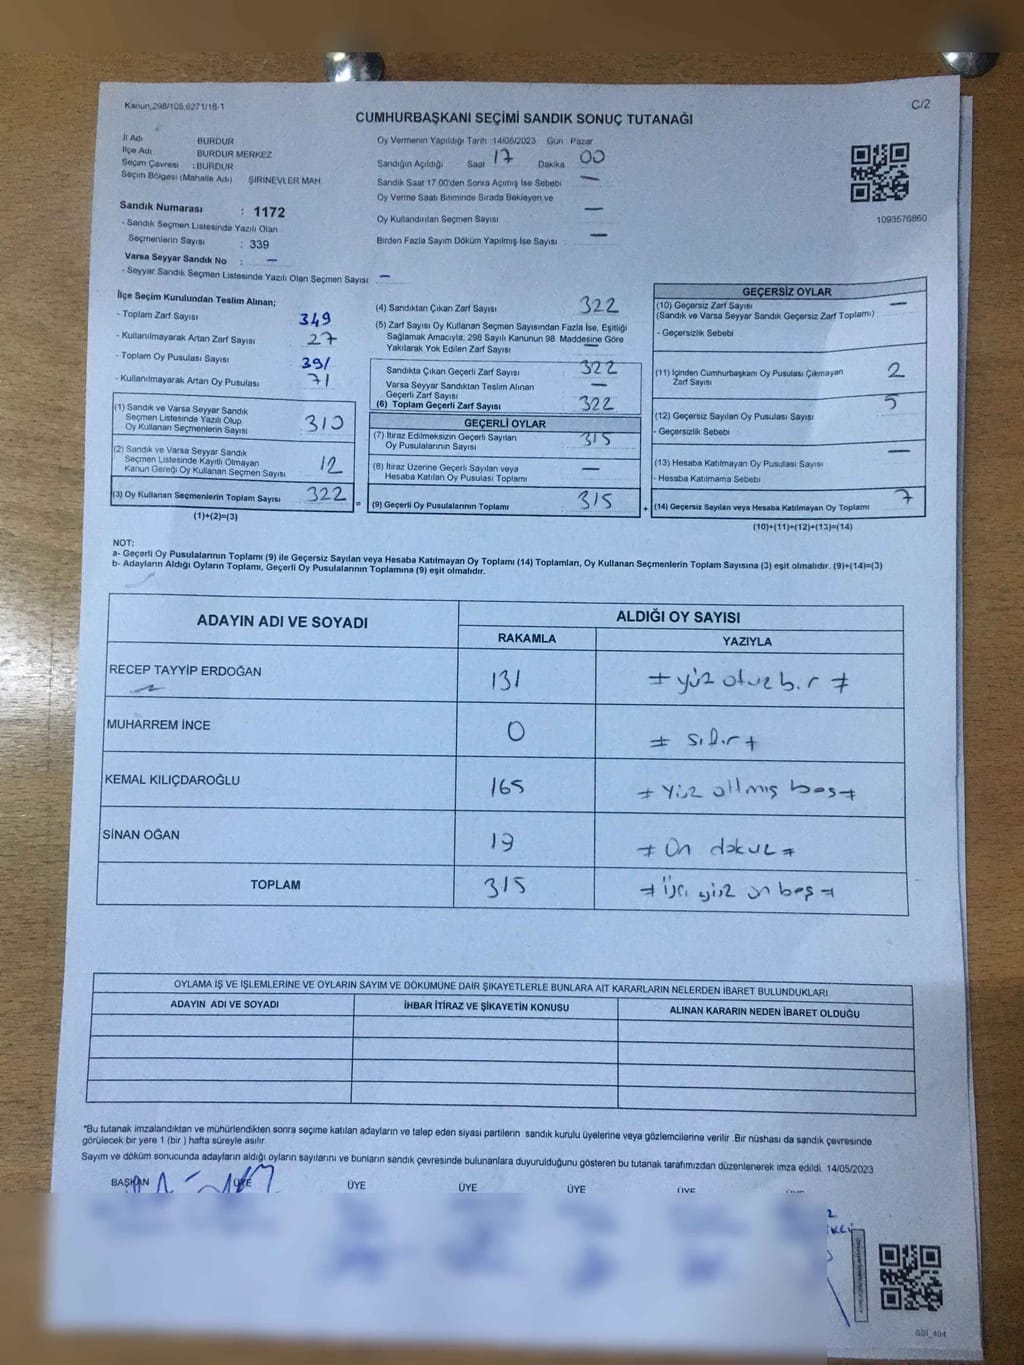 Kanun,298/105,6271/18-1
C/2
CUMHURBAŞKANI SEÇİMİ SANDIK SONUÇ TUTANAĞI
İl Adı BURDUR
İlçe Adı BURDUR MERKEZ
Seçim Çevresi : BURDUR
Seçim Bölgesi (Mahalle Adı) ŞİRİNEVLER MAH
Sandık Numarası : 1172
- Sandık Seçmen Listesinde Yazılı Olan
Seçmenlerin Sayısı : 339
Varsa Seyyar Sandık No : —
- Seyyar Sandık Seçmen Listesinde Yazılı Olan Seçmen Sayısı —
Oy Vermenin Yapıldığı Tarih 14/05/2023 Gün : Pazar
Sandığın Açıldığı Saat 17 Dakika 00
Sandık Saat 17:00'den Sonra Açımış İse Sebebi —
Oy Verme Saati Bitiminde Sırada Bekleyen ve
Oy Kullandırılan Seçmen Sayısı —
Birden Fazla Sayım Döküm Yapılmış İse Sayısı : —
1093576860
İlçe Seçim Kurulundan Teslim Alınan;
- Toplam Zarf Sayısı 349
- Kullanılmayarak Artan Zarf Sayısı 27
- Toplam Oy Pusulası Sayısı 391
- Kullanılmayarak Artan Oy Pusulası 71
(1) Sandık ve Varsa Seyyar Sandık
Seçmen Listesinde Yazılı Olup
Oy Kullanan Seçmenlerin Sayısı 310
(2) Sandık ve Varsa Seyyar Sandık
Seçmen Listesinde Kayıtlı Olmayan
Kanun Gereği Oy Kullanan Seçmen Sayısı 12
(3) Oy Kullanan Seçmenlerin Toplam Sayısı 322 =
(1)+(2)=(3)
(4) Sandıktan Çıkan Zarf Sayısı 322
(5) Zarf Sayısı Oy Kullanan Seçmen Sayısından Fazla İse, Eşitliği
Sağlamak Amacıyla, 298 Sayılı Kanunun 98. Maddesine Göre
Yakılarak Yok Edilen Zarf Sayısı —
Sandıkta Çıkan Geçerli Zarf Sayısı 322
Varsa Seyyar Sandıktan Teslim Alınan
Geçerli Zarf Sayısı —
(6) Toplam Geçerli Zarf Sayısı 322
GEÇERLİ OYLAR
(7) İtiraz Edilmeksizin Geçerli Sayılan
Oy Pusulalarının Sayısı 315
(8) İtiraz Üzerine Geçerli Sayılan veya
Hesaba Katılan Oy Pusulası Toplamı —
(9) Geçerli Oy Pusulalarının Toplamı 315 +
GEÇERSİZ OYLAR
(10) Geçersiz Zarf Sayısı —
(Sandık ve Varsa Seyyar Sandık Geçersiz Zarf Toplamı)
- Geçersizlik Sebebi
(11) İçinden Cumhurbaşkanı Oy Pusulası Çıkmayan
Zarf Sayısı 2
(12) Geçersiz Sayılan Oy Pusulası Sayısı 5
- Geçersizlik Sebebi
(13) Hesaba Katılmayan Oy Pusulası Sayısı —
- Hesaba Katılmama Sebebi
(14) Geçersiz Sayılan veya Hesaba Katılmayan Oy Toplamı 7
(10)+(11)+(12)+(13)=(14)
NOT:
a- Geçerli Oy Pusulalarının Toplamı (9) ile Geçersiz Sayılan veya Hesaba Katılmayan Oy Toplamı (14) Toplamları, Oy Kullanan Seçmenlerin Toplam Sayısına (3) eşit olmalıdır. (9)+(14)=(3)
b- Adayların Aldığı Oyların Toplamı, Geçerli Oy Pusulalarının Toplamına (9) eşit olmalıdır.
ADAYIN ADI VE SOYADI ALDIĞI OY SAYISI
RAKAMLA YAZIYLA
RECEP TAYYİP ERDOĞAN 131 ≠ yüz otuz bir ≠
MUHARREM İNCE 0 ≠ sıfır ≠
KEMAL KILIÇDAROĞLU 165 ≠ yüz altmış beş ≠
SİNAN OĞAN 19 ≠ On dokuz ≠
TOPLAM 315 ≠ üç yüz on beş ≠
OYLAMA İŞ VE İŞLEMLERİNE VE OYLARIN SAYIM VE DÖKÜMÜNE DAİR ŞİKAYETLERLE BUNLARA AİT KARARLARIN NELERDEN İBARET BULUNDUKLARI
ADAYIN ADI VE SOYADI İHBAR İTİRAZ VE ŞİKAYETİN KONUSU ALINAN KARARIN NEDEN İBARET OLDUĞU
*Bu tutanak imzalandıktan ve mühürlendikten sonra seçime katılan adayların ve talep eden siyasi partilerin sandık kurulu üyelerine veya gözlemcilerine verilir .Bir nüshası da sandık çevresinde
görülecek bir yere 1 (bir ) hafta süreyle asılır.
Sayım ve döküm sonucunda adayların aldığı oyların sayılarını ve bunların sandık çevresinde bulunanlara duyurulduğunu gösteren bu tutanak tarafımızdan düzenlenerek imza edildi. 14/05/2023
BAŞKAN ÜYE ÜYE ÜYE ÜYE ÜYE
GBİ_404